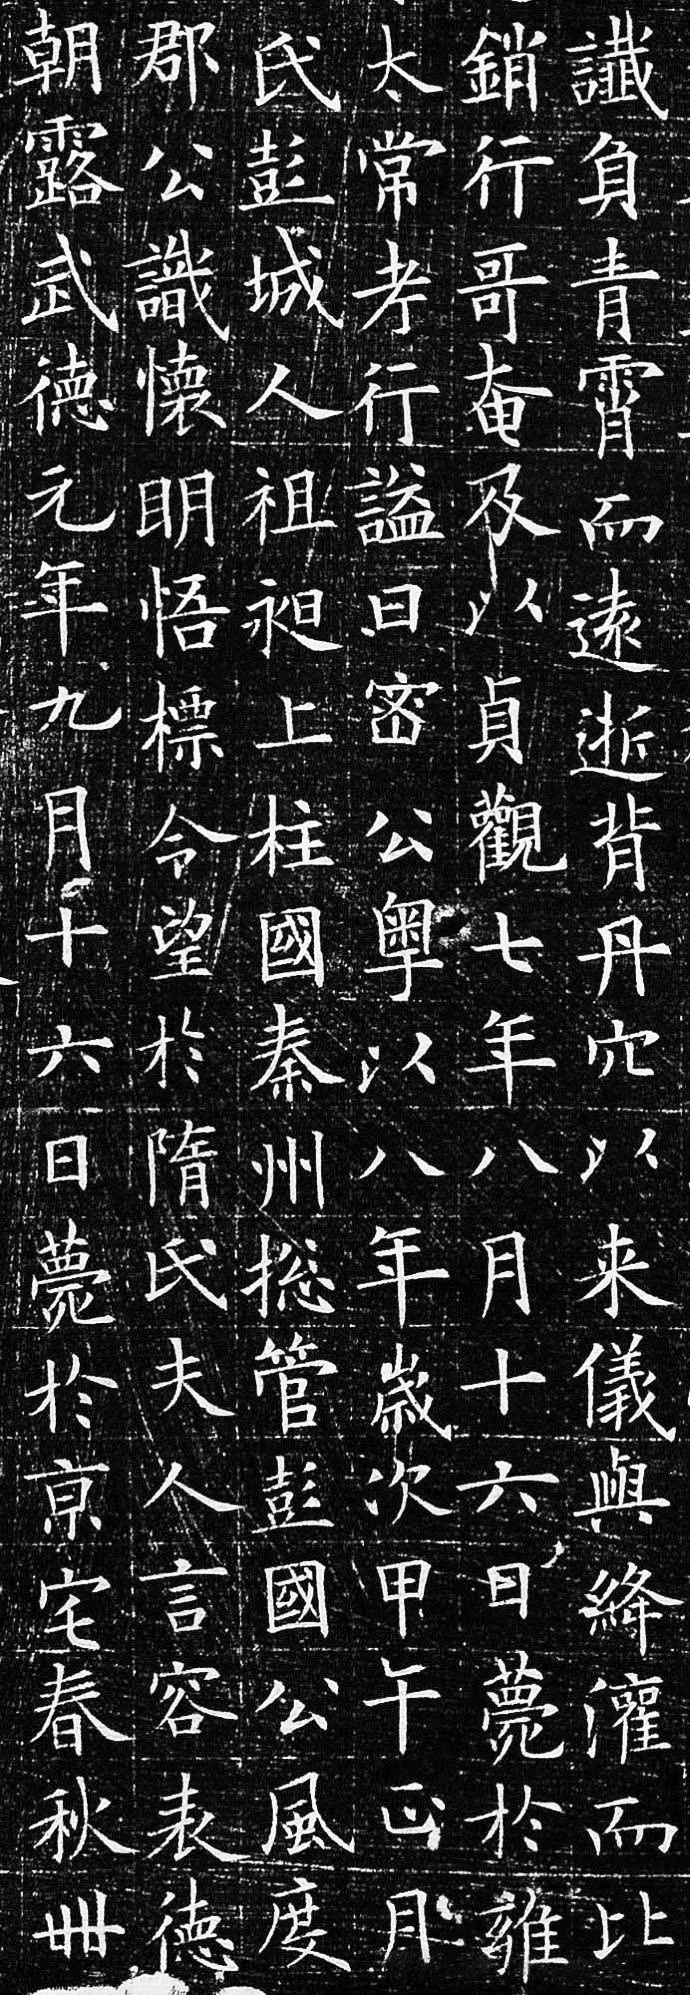 讖負青霄而遠逝背丹穴以来儀與絳灌而比
銷行哥奄及以貞觀七年八月十六日薨於雍
太常考行謚曰密公粤以八年歳次甲午正月
氏彭城人祖昶上柱國秦州揔管彭國公風度
郡公識懷明悟標令望於隋氏夫人言容表德
朝露武德元年九月十六日薨於京宅春秋卌